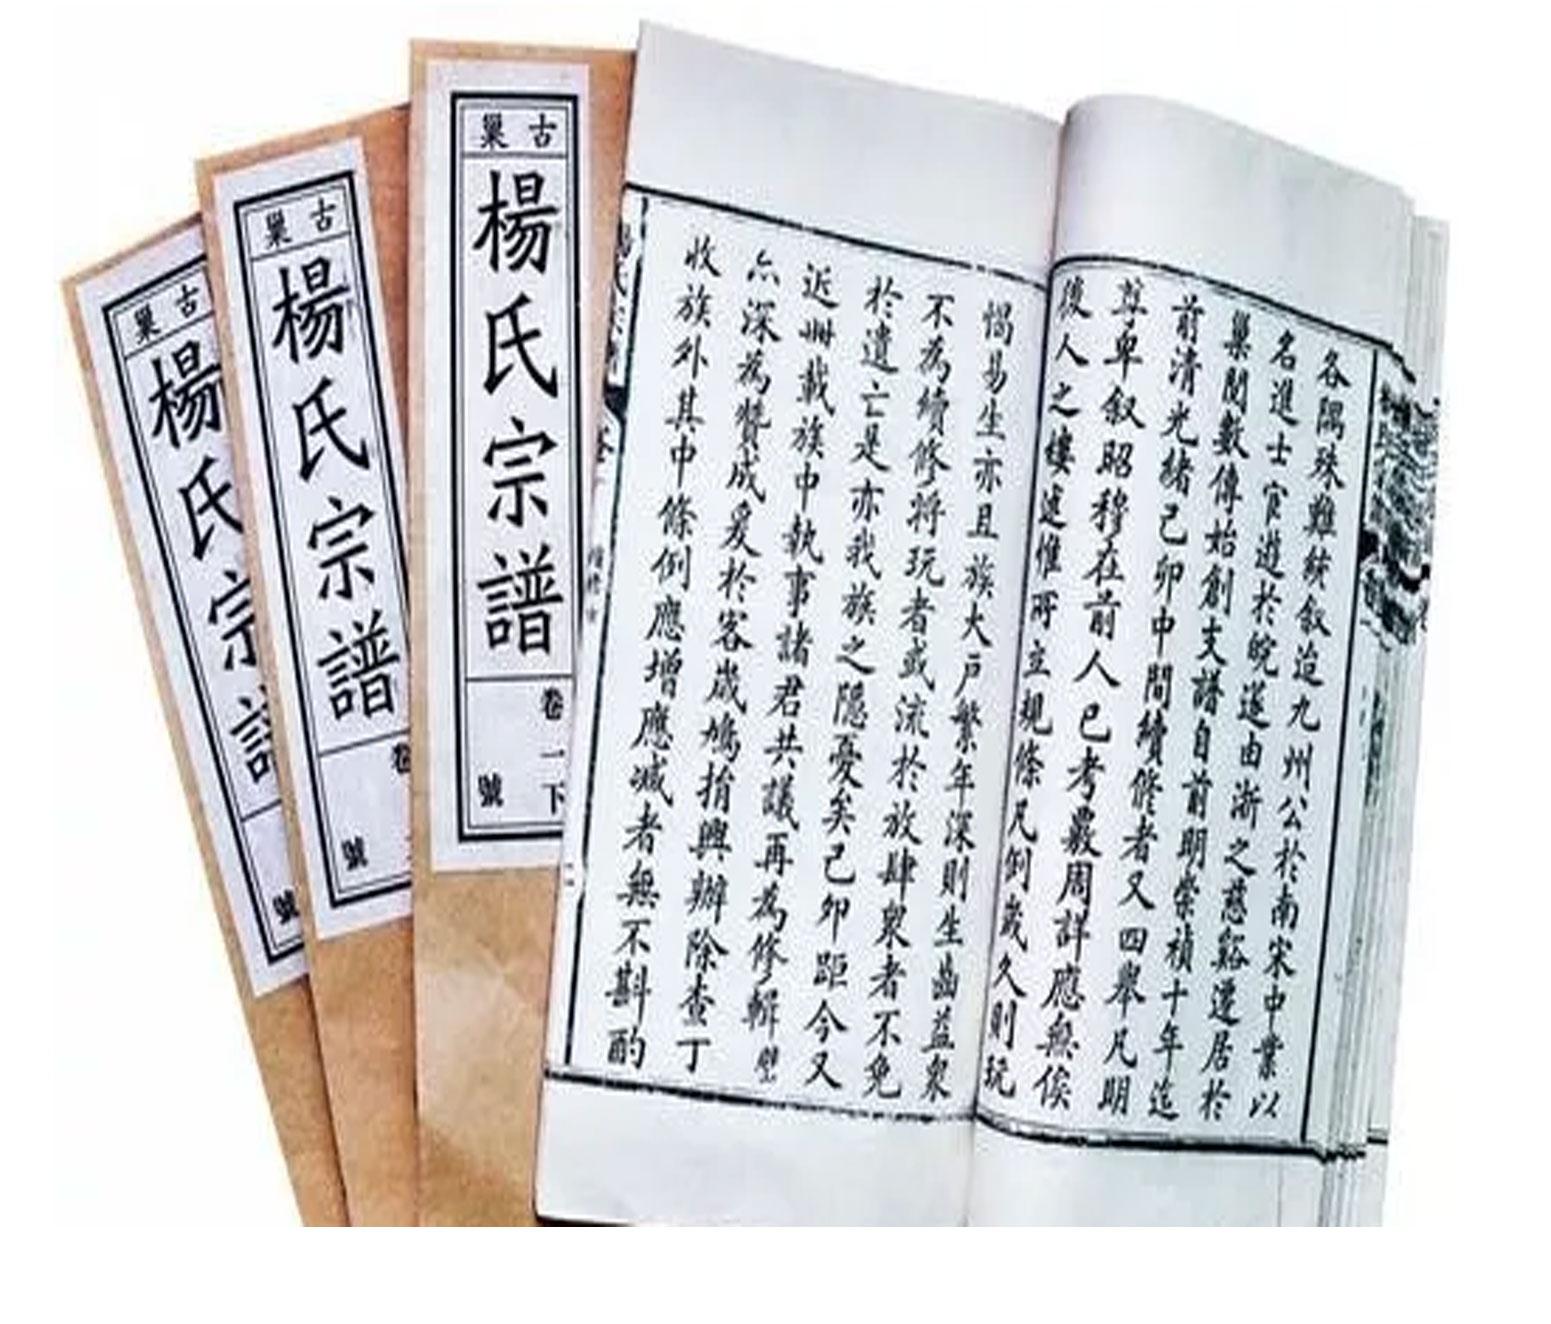 古巢
楊氏宗譜
號
古巢
楊氏宗譜
卷
號
古巢
楊氏宗譜
卷一下
號
各隅殊難統叙迨九州公於南宋中業以
名進士官遊於皖遂由浙之慈谿遷居於
巢閱數傳始創支譜自前明崇禎十年迄
前清光緒己卯中間續修者又四舉凡明
尊卑叙昭穆在前人已考覈周詳應無俟
後人之縷述惟所立規條凡例歲久則玩
愒易生亦且族大戶繁年深則生齒益衆
不為續修將玩者或流於放肆衆者不免
於遺亡是亦我族之隱憂矣己卯距今又
近卌載族中執事諸君共議再為修輯
亦深為贊成爰於客歲鳩指興辦除查丁
收族外其中條例應增應減者無不斟酌